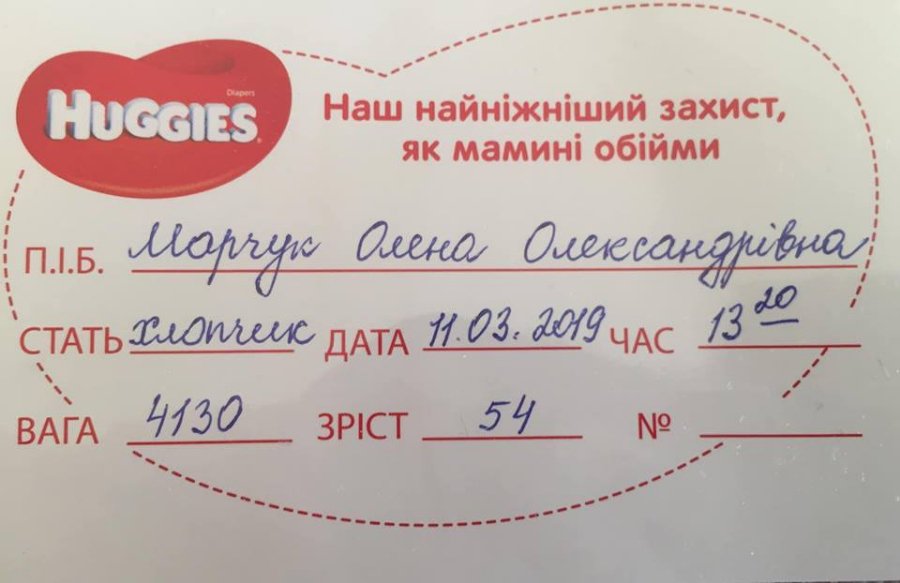 Diapers
HUGGIES
Наш найніжніший захист,
як мамині обійми
П.І.Б. Марчук Олена Олександрівна
СТАТЬ хлопчик ДАТА 11.03.2019 ЧАС 13 20
ВАГА 4130 ЗРІСТ 54 №